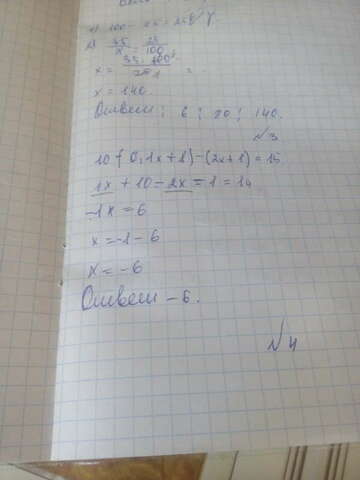 35/x = 25/100
x = 35 · 100 / 25 =
x = 140.
Ответ: 6; 20; 140.
№3
10 (0,1x + 1) - (2x + 1) = 15
1x + 10 - 2x - 1 = 14
-1x = 6
x = -1 - 6
x = -6
Ответ - 6.
№4